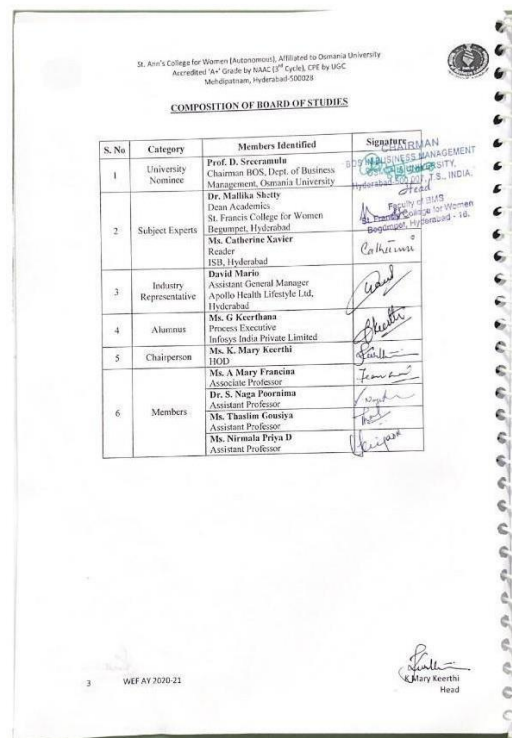 St. Ann's College for Women (Autonomous), Affiliated to Osmania University
Accredited 'A+' Grade by NAAC (3rd Cycle), CPE by UGC
Mehdipatnam, Hyderabad-500028
COMPOSITION OF BOARD OF STUDIES
S. No Category Members Identified Signature
CHAIRMAN
BOS IN BUSINESS MANAGEMENT
1 University Nominee
Prof. D. Sreeramulu
Chairman BOS, Dept. of Business
Management, Osmania University
Hyderabad T.S., INDIA.
2 Subject Experts
Dr. Mallika Shetty
Dean Academics
St. Francis College for Women
Begumpet, Hyderabad
Head
Faculty of BMS
St. Francis College for Women
Begumpet, Hyderabad - 16.
Ms. Catherine Xavier
Reader
ISB, Hyderabad
Catherine
3 Industry Representative
David Mario
Assistant General Manager
Apollo Health Lifestyle Ltd,
Hyderabad
4 Alumnus
Ms. G Keerthana
Process Executive
Infosys India Private Limited
5 Chairperson
Ms. K. Mary Keerthi
HOD
6 Members
Ms. A Mary Francina
Associate Professor
Dr. S. Naga Poornima
Assistant Professor
Ms. Thaslim Gousiya
Assistant Professor
Ms. Nirmala Priya D
Assistant Professor
3 WEF AY 2020-21
K Mary Keerthi
Head